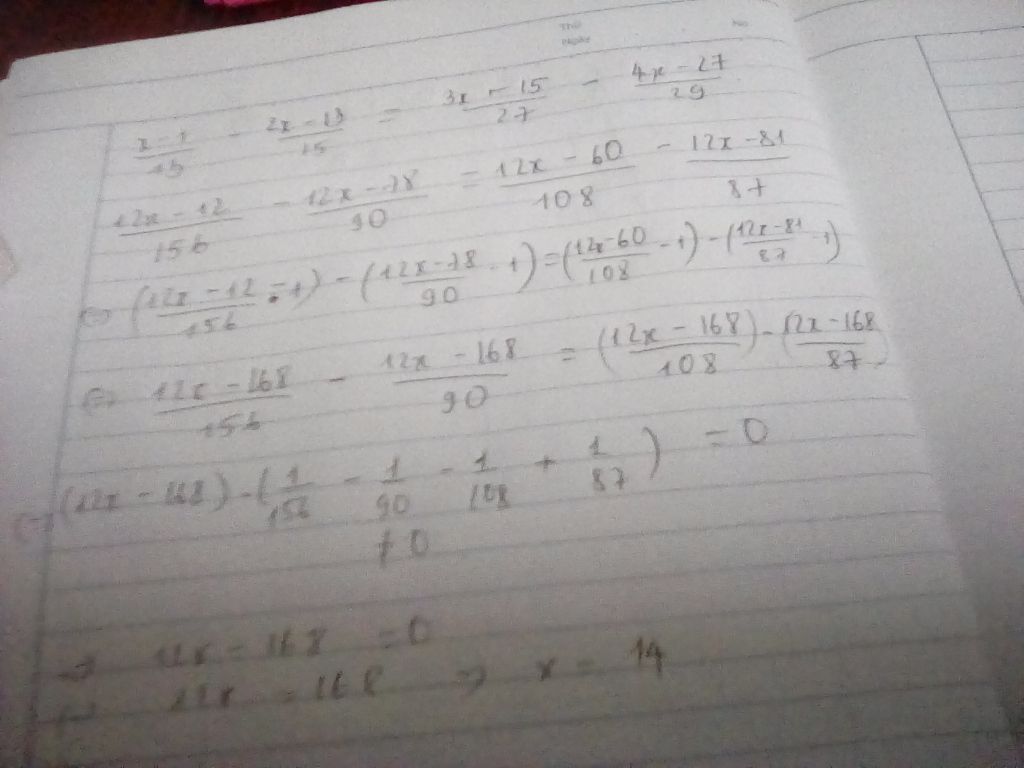 Thứ No
Ngày
x - 1/13 - 2x - 13/15 = 3x - 15/27 - 4x - 27/29
12x - 12/156 - 12x - 78/90 = 12x - 60/108 - 12x - 81/87
⇔ (12x - 12/156 - 1) - (12x - 78/90 - 1) = (12x - 60/108 - 1) - (12x - 81/87 - 1)
⇔ 12x - 168/156 - 12x - 168/90 = (12x - 168/108) - (12x - 168/87)
⇔ (12x - 168) - (1/156 - 1/90 - 1/108 + 1/87) = 0
≠ 0
⇒ 12x - 168 = 0
⇔ 12x = 168 ⇒ x = 14